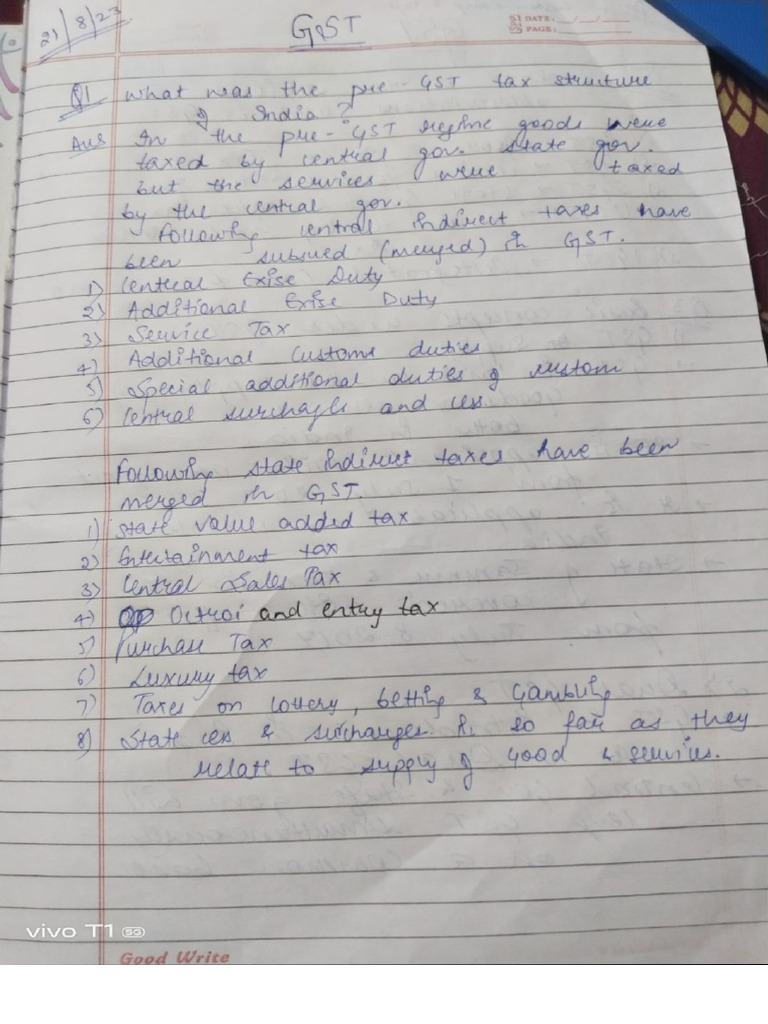 21/8/23
GST
DATE: __/__/__
PAGE:
Q1 what was the pre-GST tax structure
of India?
Ans In the pre-GST regime goods were
taxed by central gov. state gov.
but the services were taxed
by the central gov.
Following central indirect taxes have
been subsued (merged) in GST.
1) Central Exise Duty
2) Additional Exise Duty
3) Service Tax
4) Additional Customs duties
5) Special additional duties of custom
6) Central surcharge and cess.
Following state indirect taxes have been
merged in GST.
1) State value added tax
2) Entertainment tax
3) Central Sales Tax
4) Octroi and entry tax
5) Purchase Tax
6) Luxury tax
7) Taxes on lottery, betting & Gambling
8) State cess & surcharges. so far as they
relate to supply of Good & services.
vivo T1 5G
Good Write